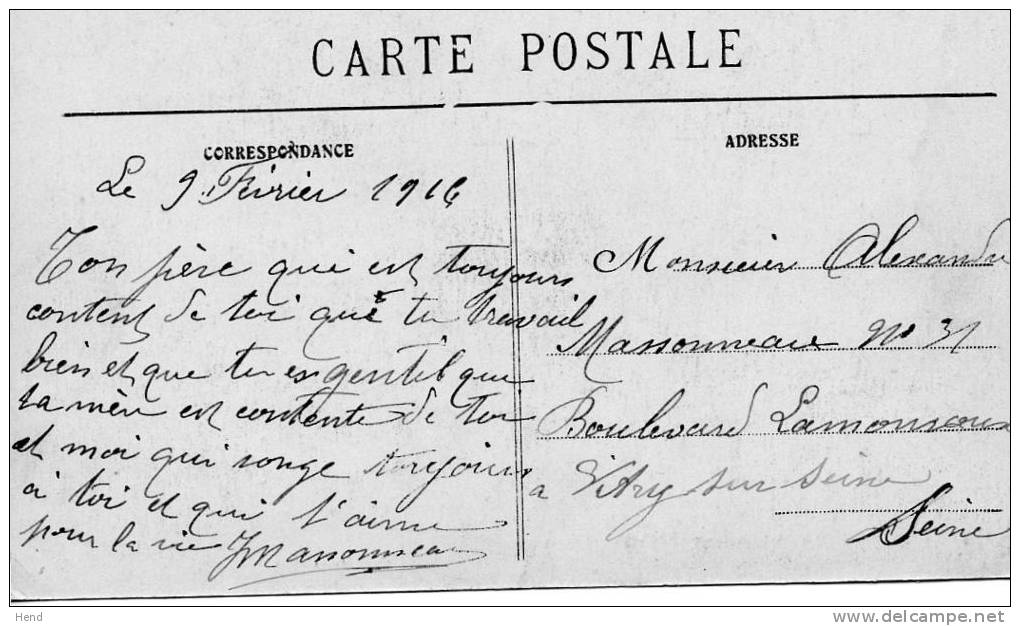 CARTE POSTALE
CORRESPONDANCE
Le 9 Février 1916
Ton père qui est toujours
content de toi que tu travail
bien et que tu es gentil que
ta mère est contente de toi
et moi qui songe toujours
à toi et qui t'aime
pour la vie Massonneau
ADRESSE
Monsieur Alexandre
Massonneau No 31
Boulevard Lamouroux
a Vitry sur Seine
Seine
Hend
www.delcampe.net